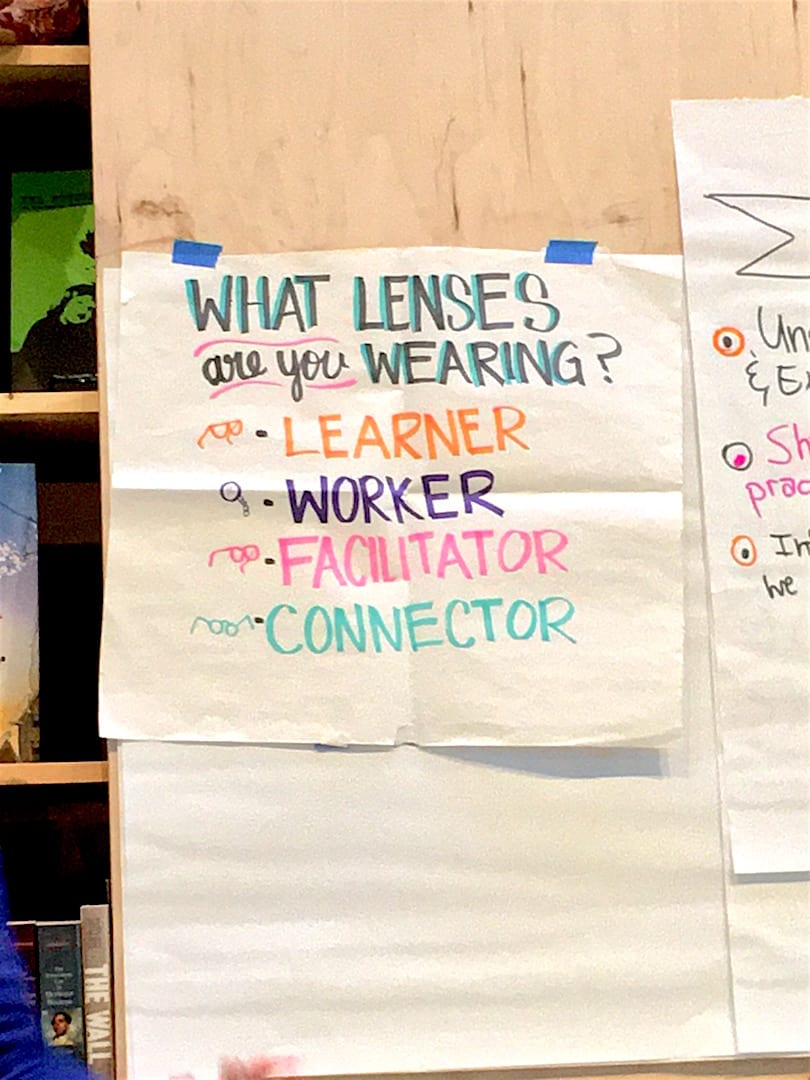 WHAT LENSES
are you WEARING?
LEARNER
WORKER
FACILITATOR
CONNECTOR
& 
we
THE WALL